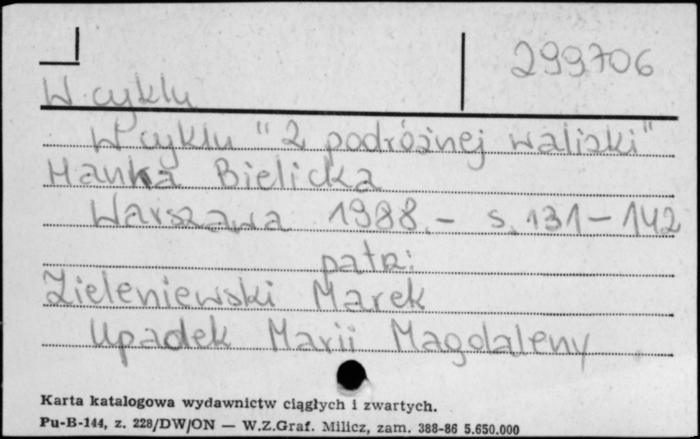 299706
W cyklu
W cyklu "Z podróżnej walizki"
Hanka Bielicka
Warszawa 1988.- s. 131-142
patrz:
Zieleniewski Marek
Upadek Marii Magdaleny
Karta katalogowa wydawnictw ciągłych i zwartych.
Pu-B-144, z. 228/DW/ON — W.Z.Graf. Milicz, zam. 388-86 5.650.000